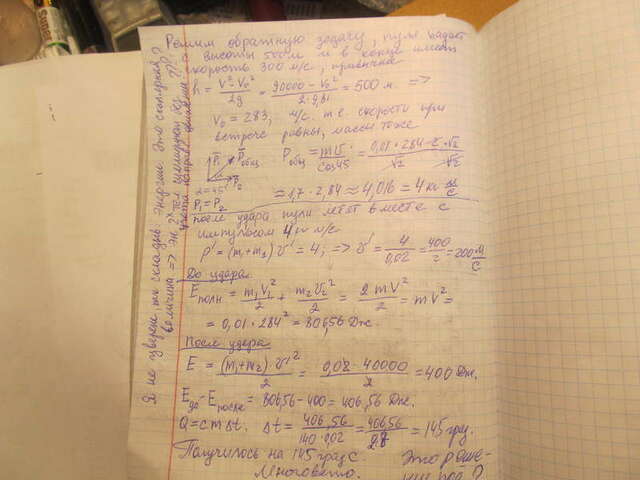 Решим обратную задачу, пуля падает
с высоты 500 м и в конце имеет
скорость 300 м/с,
h = (V² - V₀²)/2g = (90000 - V₀²)/(2·9,81) = 500 м. =>
V₀ = 283, м/с. т.е. скорости при
встрече равны, массы тоже
P̄₁ P̄общ P̄₂ Pобщ = mv/cos45 = 0,01·284·2·√2/(√2·√2)
α=45°
P₁ = P₂ = 1,7·2,84 ≈ 4,016 = 4 кг м/с
После удара пули летят вместе с
импульсом 4 кг м/с.
P' = (m₁+m₂)v' = 4; => v' = 4/0,02 = 400/2 = 200 м/с
До удара
Eполн = m₁V₁²/2 + m₂V₂²/2 = 2mV²/2 = mV² =
= 0,01·284² = 806,56 Дж.
После удара
E = (m₁+m₂)·v'²/2 = 0,02·40000/2 = 400 Дж.
Eдо - Eпосле = 806,56 - 400 = 406,56 Дж.
Q = cmΔt. Δt = 406,56/(140·0,02) = 406,56/2,8 = 145 гр.
Получилось на 145 град С.
Многовато.
Это реше-
Я не уверен, что складыв. энергии. Это скалярная?
величина =>